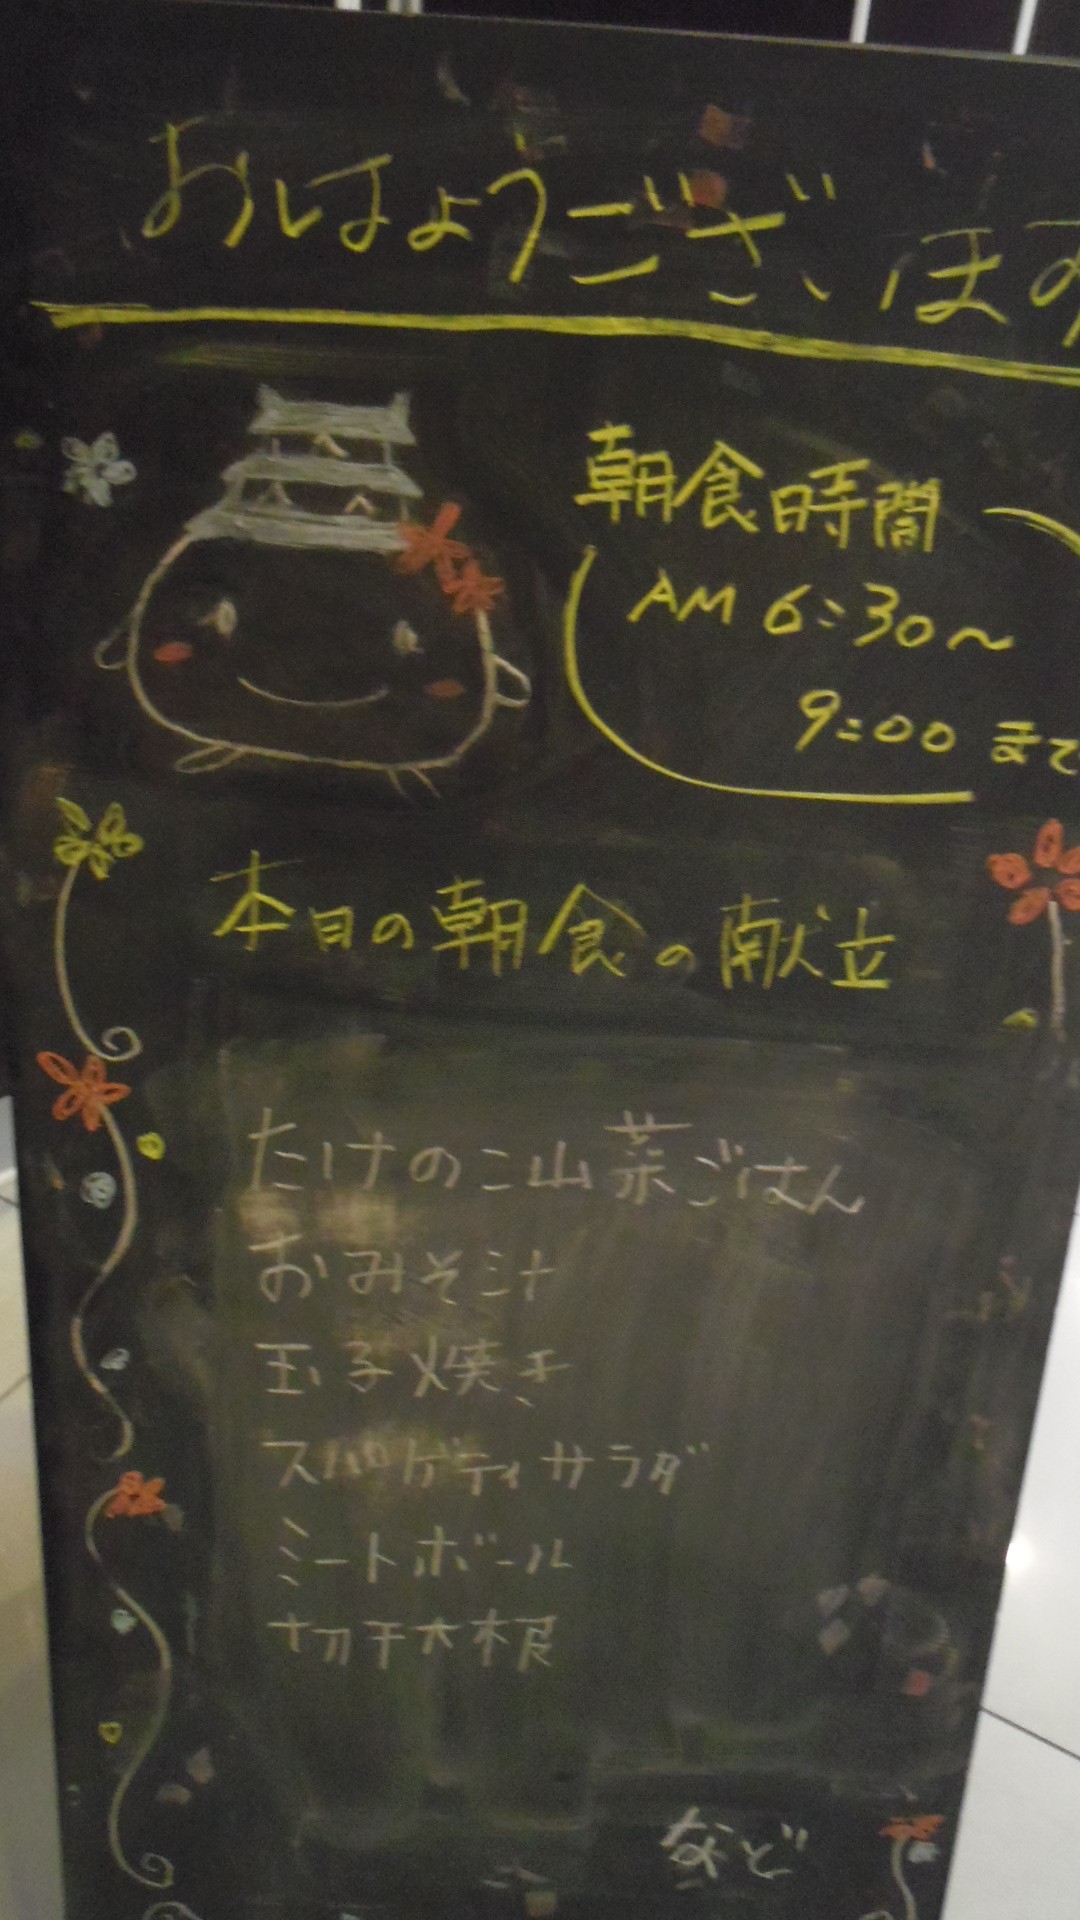 おはようございます
朝食時間
AM 6:30~
9:00 まで
本日の朝食の献立
たけのこ山菜ごはん
おみそ汁
玉子焼き
スパゲティサラダ
ミートボール
切干大根
など